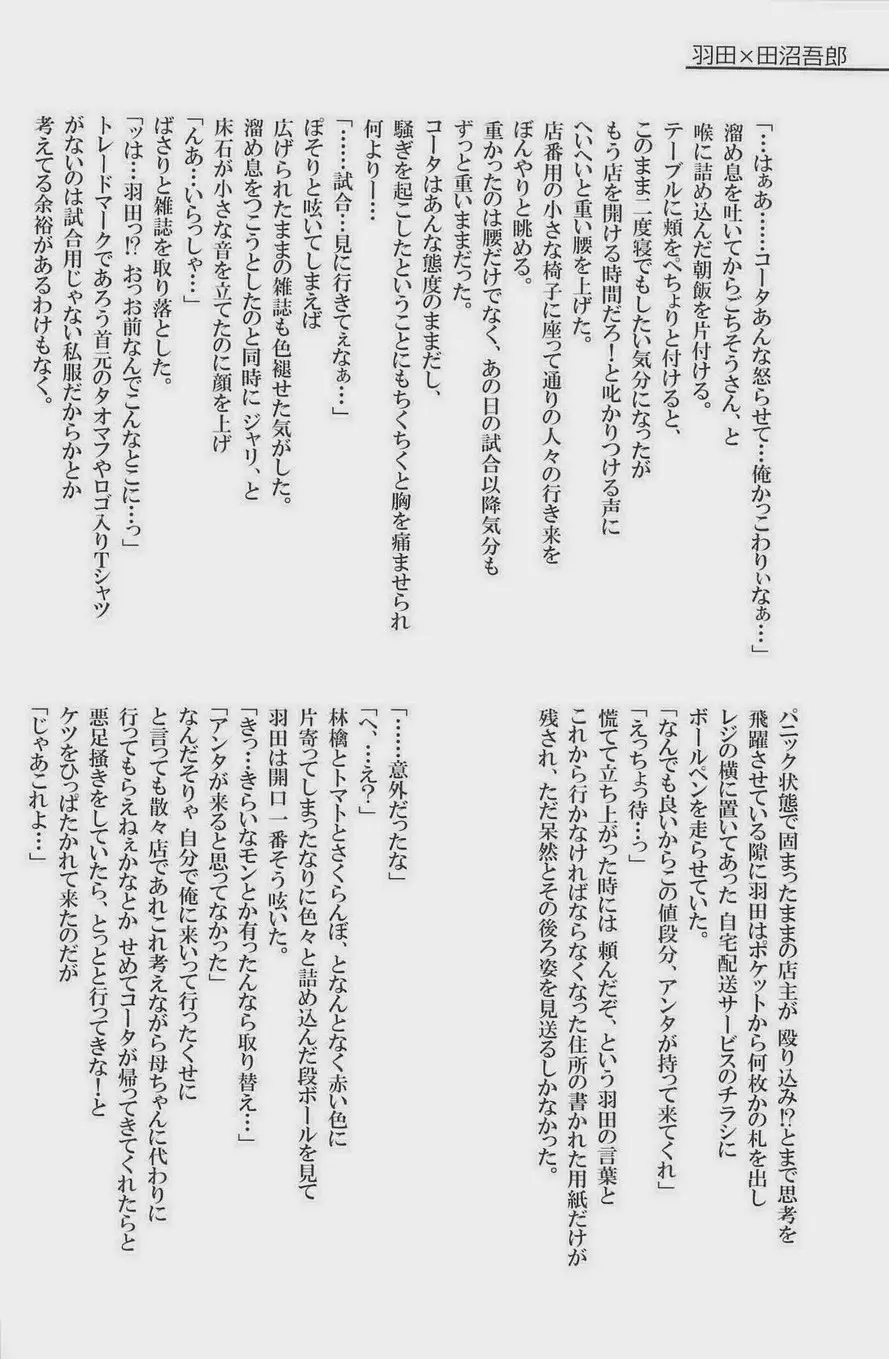 羽田×田沼吾郎
「…はぁあ……コータあんな怒らせて…俺かっこわりぃなぁ…」
溜め息を吐いてからごちそうさん、と
喉に詰め込んだ朝飯を片付ける。
テーブルに頬をぺちょりと付けると、
このまま二度寝でもしたい気分になったが
もう店を開ける時間だろ！と叱かりつける声に
へいへいと重い腰を上げた。
店番用の小さな椅子に座って通りの人々の行き来を
ぼんやりと眺める。
重かったのは腰だけでなく、あの日の試合以降気分も
ずっと重いままだった。
コータはあんな態度のままだし、
騒ぎを起こしたということにもちくちくと胸を痛ませられ
何よりー…
「……試合…見に行きてぇなぁ…」
ぽそりと呟いてしまえば
広げられたままの雑誌も色褪せた気がした。
溜め息をつこうとしたのと同時に ジャリ、と
床石が小さな音を立てたのに顔を上げ
「んあ…いらっしゃ…」
ばさりと雑誌を取り落とした。
「ッは…羽田っ!? おっお前なんでこんなとこに…っ」
トレードマークであろう首元のタオマフやロゴ入りTシャツ
がないのは試合用じゃない私服だからかとか
考えてる余裕があるわけもなく。
パニック状態で固まったままの店主が 殴り込み!?とまで思考を
飛躍させている隙に羽田はポケットから何枚かの札を出し
レジの横に置いてあった 自宅配送サービスのチラシに
ボールペンを走らせていた。
「なんでも良いからこの値段分、アンタが持って来てくれ」
「えっちょっ待…っ」
慌てて立ち上がった時には 頼んだぞ、という羽田の言葉と
これから行かなければならなくなった住所の書かれた用紙だけが
残され、ただ呆然とその後ろ姿を見送るしかなかった。
「……意外だったな」
「へ、…え？」
林檎とトマトとさくらんぼ、となんとなく赤い色に
片寄ってしまったなりに色々と詰め込んだ段ボールを見て
羽田は開口一番そう呟いた。
「きっ…きらいなモンとか有ったんなら取り替え…」
「アンタが来ると思ってなかった」
なんだそりゃ 自分で俺に来いって行ったくせに
と言っても散々店であれこれ考えながら母ちゃんに代わりに
行ってもらえねぇかなとか せめてコータが帰ってきてくれたらと
悪足掻きをしていたら、とっとと行ってきな！と
ケツをひっぱたかれて来たのだが
「じゃあこれよ…」